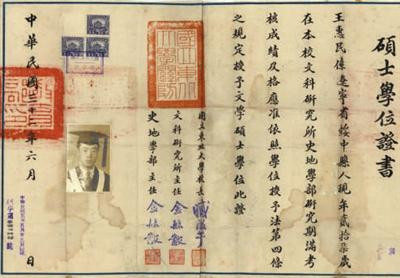 碩士學位證書
王惠民係遼寧省綏中縣人現年貳拾柒歲
在本校文科研究所史地學部研究期滿考
核成績及格應准依照學位授予法第四條
之規定授予文學碩士學位此證
國立東北大學校長 臧啟芳
文科研究所主任 金毓黻
史地學部主任 金毓黻
中華民國三十二年六月 日